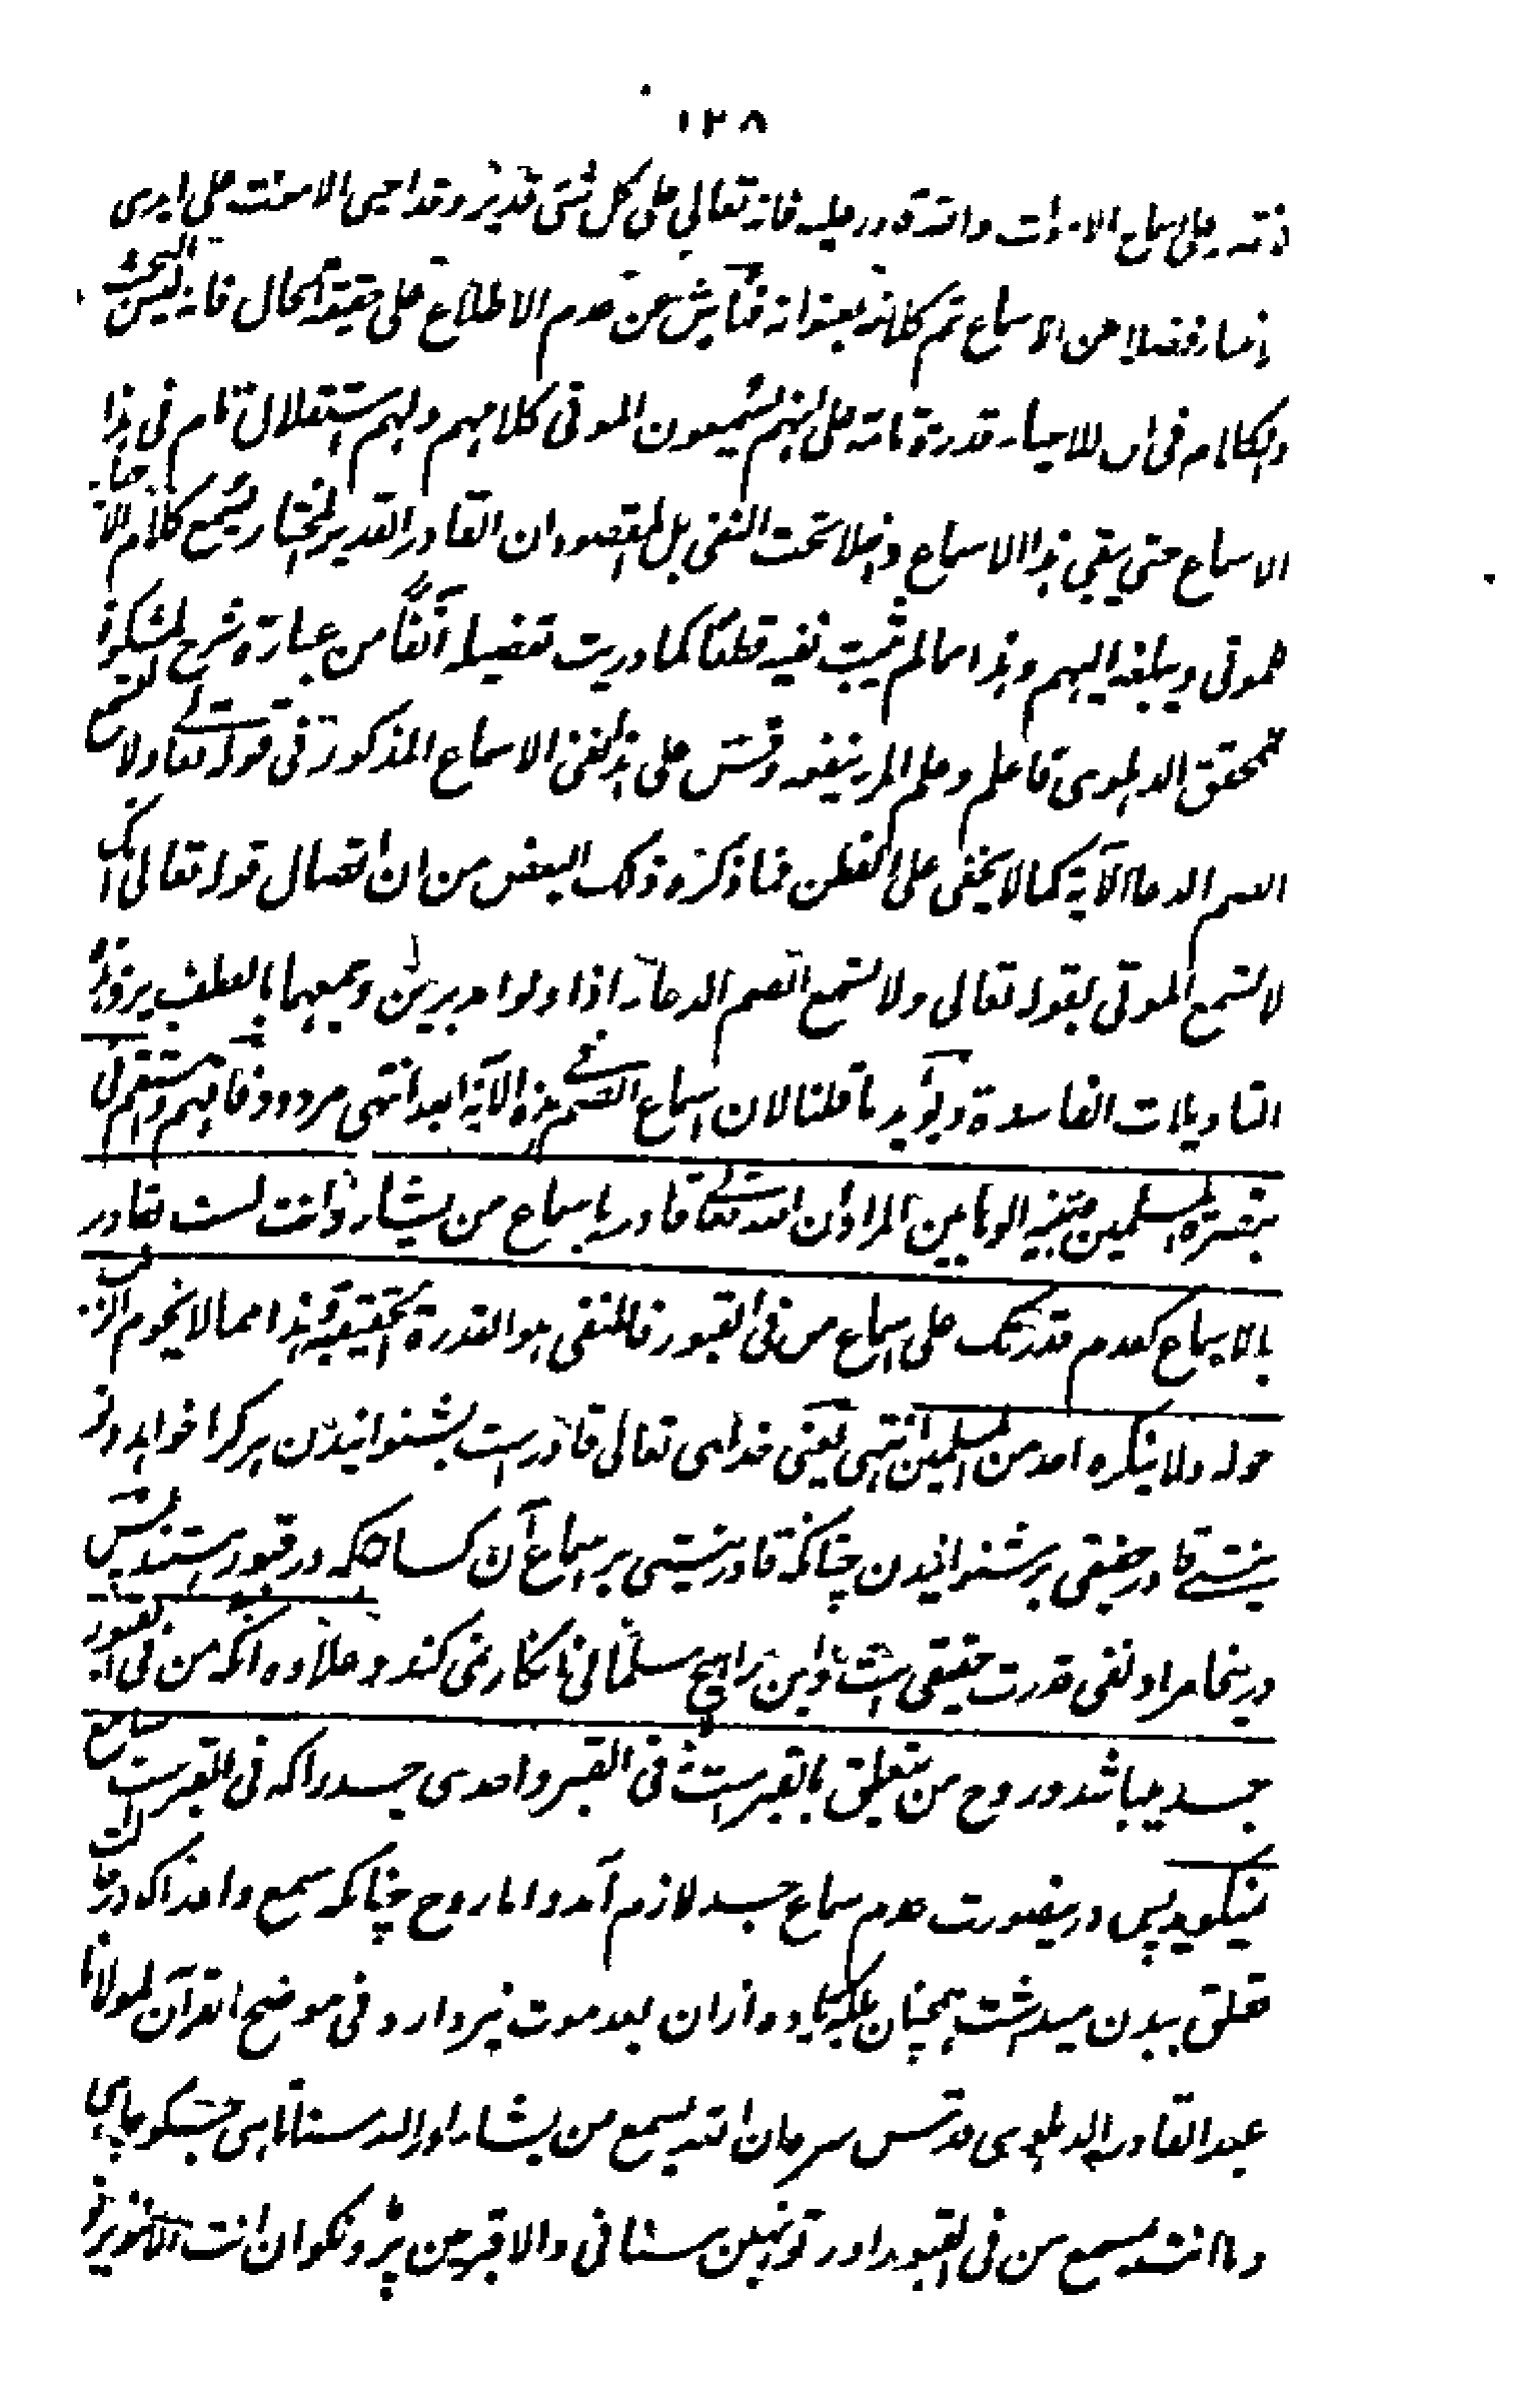 ١٢٨
على سماع الاموات وانه قادر عليه فانه تعالى على كل شئ قدير وقد احيى الاموات على ايدى
فضلا عن الاسماع ثم كلامه بعنوانه فناش عن عدم الاطلاع على حقيقة الحال فانه ليس البحث
والكلام فى ان للاحياء قدرة تامة على انهم يسمعون الموتى كلامهم ولهم استقلال تام فى هذا
الاسماع حتى يبقى هذا الاسماع داخلا تحت النفى بل المقصود ان القادر القدير المختار يسمع كلام الاحياء
للموتى ويبلغه اليهم وهذا مما لم يثبت نفيه قطعا كما دريت تفصيله آنفا من عبارة شرح المشكوة
للمحقق الدهلوى فاعلم وعلم المرء ينفعه وقس على هذا نفى الاسماع المذكور فى قوله تعالى ولا تسمع
الصم الدعاء الآية كما لا يخفى على الفطن فما ذكره ذلك البعض من ان اتصال قوله تعالى انك
لا تسمع الموتى بقوله تعالى ولا تسمع الصم الدعاء اذا ولوا مدبرين وجمعهما بالعطف يرد هذه
التاويلات الفاسدة ويؤيد ما قلنا لان اسماع الصم فى هذه الآية ابعد انتهى مردود فافهم واستقم فى
تبصرة المسلمين تنبيه الوهابيين المراد ان الله تعالى قادر باسماع من يشاء وانت لست بقادر
بالاسماع كعدم قدرتك على اسماع من فى القبور فالمنفى هو القدرة الحقيقية وهذا مما لا يحوم الانكار
حوله ولا ينكره احد من المسلمين انتهى يعنى خداى تعالى قادر است بشنوانيدن هر كرا خواهد وتو
نيستى قادر حقيقى بر شنوانيدن چنانكه قادر نيستى بر اسماع آن كسانكه در قبور هستند پس
درينجا مراد نفى قدرت حقيقى است واين را هيچ مسلمانى انكار نمى كند وعلاوه آنكه من فى القبور
جسد ميباشد وروح من متعلق بالقبر است نه فى القبر واحدى جسد را كه فى القبر است سامع
نميگويد پس درينصورت عدم سماع جسد لازم آمد واما روح چنانكه سمع وادراك در حالت
تعلق ببدن ميداشت همچنان بلكه زياده ازان بعد موت نيز دارد وفى موضح القرآن لمولانا
عبد القادر الدهلوى قدس سره ان الله يسمع من يشاء اور الله سناتا هى جسكو چاهى
وما انت بمسمع من فى القبور اور تو نهين سنانى والا قبر مين پڑونكو ان انت الا نذير تو